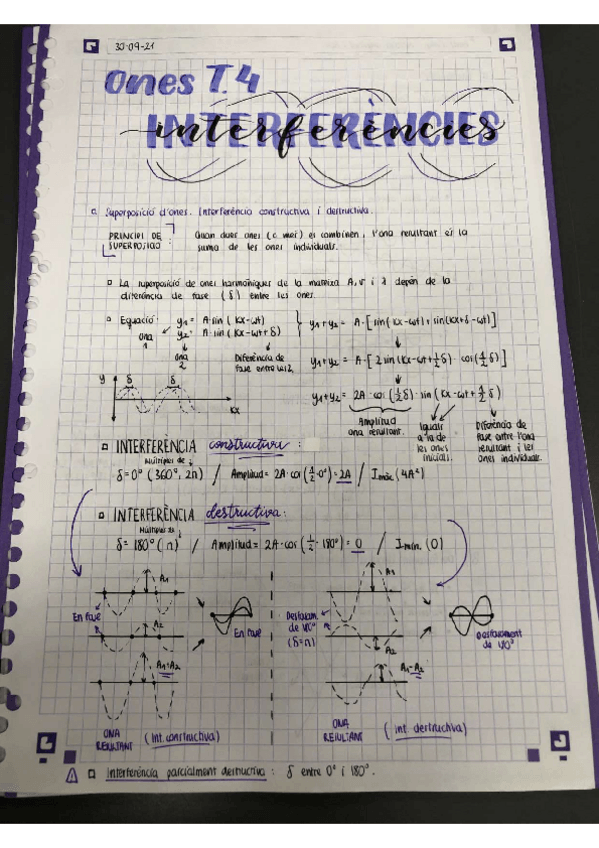 30-09-21
Ones T.4
INTERFERÈNCIES
interferències
Superposició d'ones. Interferència constructiva i destructiva.
PRINCIPI DE SUPERPOSICIÓ : Quan dues ones (= mei) es combinen, l'ona resultant és la
suma de les ones individuals.
La superposició de ones harmòniques de la mateixa A, v i λ depèn de la
diferència de fase (δ) entre les ones.
Equació: y1 = A·sin (kx-wt)
y2 = A·sin (kx-wt+δ)
ona 1
ona 2
Diferència de
fase entre 1 i 2.
y1+y2 = A·[sin(kx-wt)+sin(kx+δ-wt)]
y1+y2 = A·[2 sin(kx-wt+½δ)·cos(½δ)]
y1+y2 = 2A·cos(½δ)·sin(kx-wt+½δ)
Amplitud
ona resultant.
Iguals
a la de
les ones
inicials.
Diferència de
fase entre l'ona
resultant i les
ones individuals.
y
δ
δ
kx
INTERFERÈNCIA constructiva:
Múltiples de
δ=0° (360°, 2π) / Amplitud = 2A·cos(½·0°)=2A / Imàx (4A²)
INTERFERÈNCIA destructiva:
Múltiples de
δ=180° (π) / Amplitud = 2A·cos(½·180°)=0 / Imín. (0)
A1
En fase
A2
En fase
A1+A2
ONA
RESULTANT
(Int. constructiva)
A1
Desfasam.
de
(δ=π)
A2
Desfasament
de
A1-A2
ONA
RESULTANT
(Int. destructiva)
Interferència parcialment destructiva : δ entre 0° i 180°.